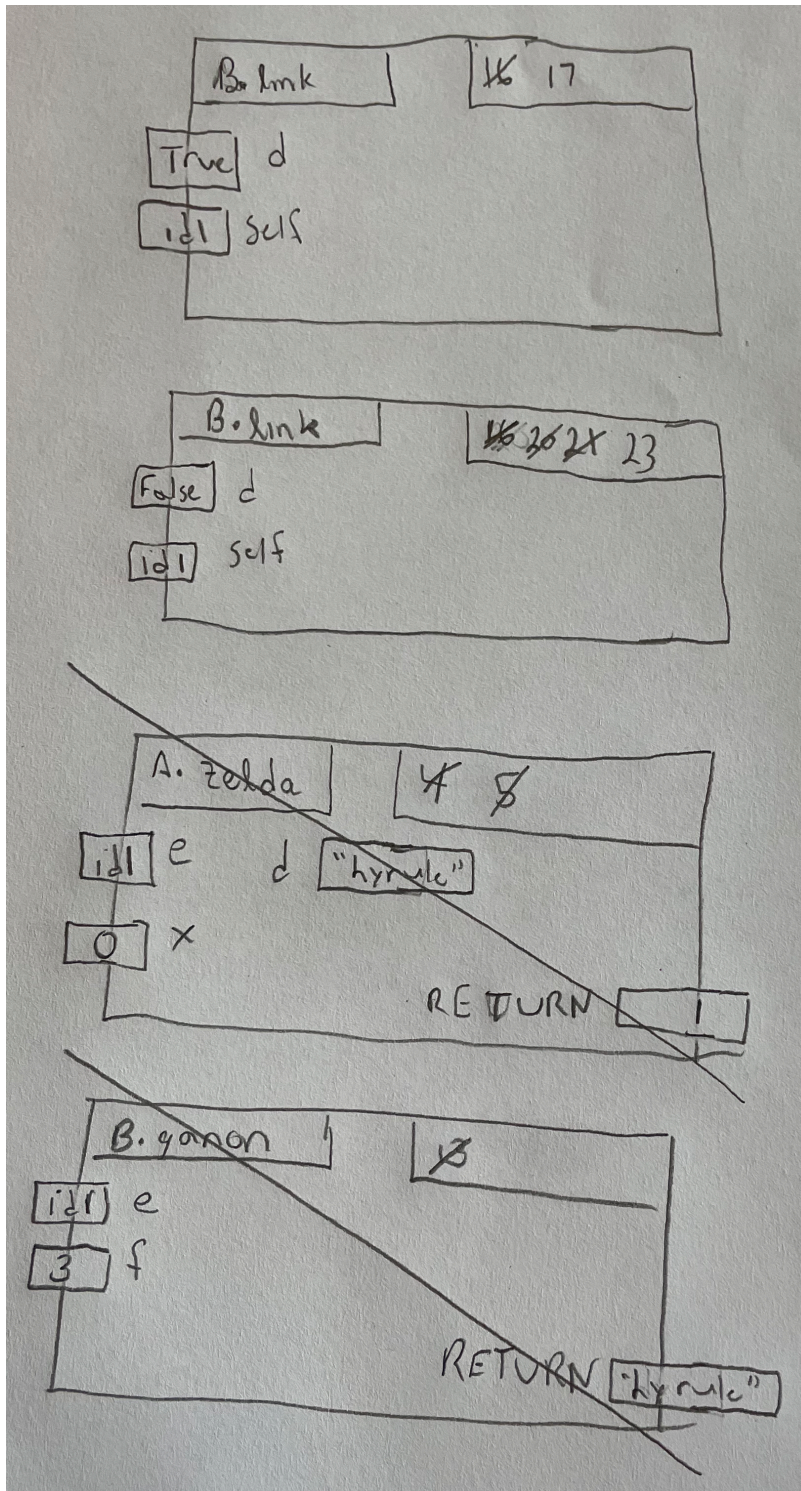 B. link 16 17
True d
id1 self
B. link 16 20 21 23
False d
id1 self
A. zelda 4 5
id1 e d "hyrule"
0 x
RETURN 1
B. ganon 13
id1 e
3 f
RETURN "hyrule"